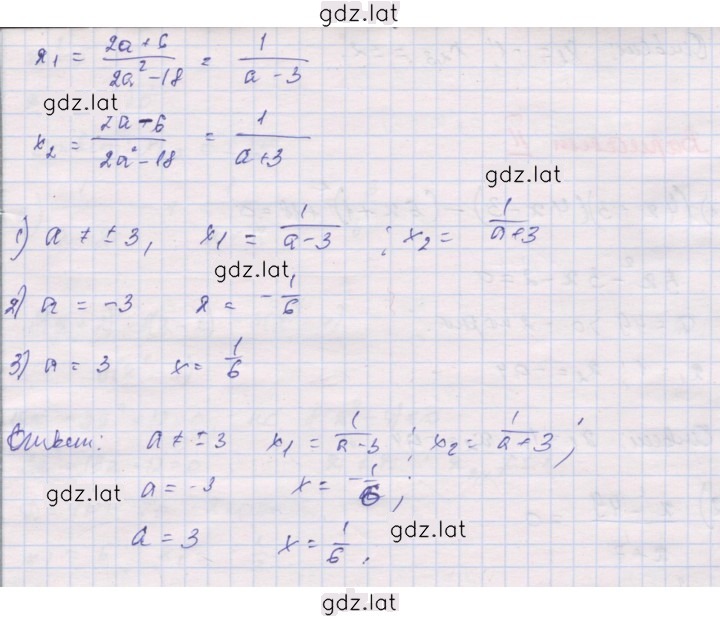 gdz.lat
x₁ = (2a+6)/(2a²-18) = 1/(a-3)
gdz.lat
x₂ = (2a-6)/(2a²-18) = 1/(a+3)
gdz.lat
1) a ≠ ±3, x₁ = 1/(a-3) ; x₂ = 1/(a+3)
gdz.lat
2) a = -3 x = -1/6
3) a = 3 x = 1/6
Ответ: a ≠ ±3 x₁ = 1/(a-3) ; x₂ = 1/(a+3) ;
gdz.lat a = -3 x = -1/6 ;
gdz.lat
a = 3 x = 1/6 .
gdz.lat